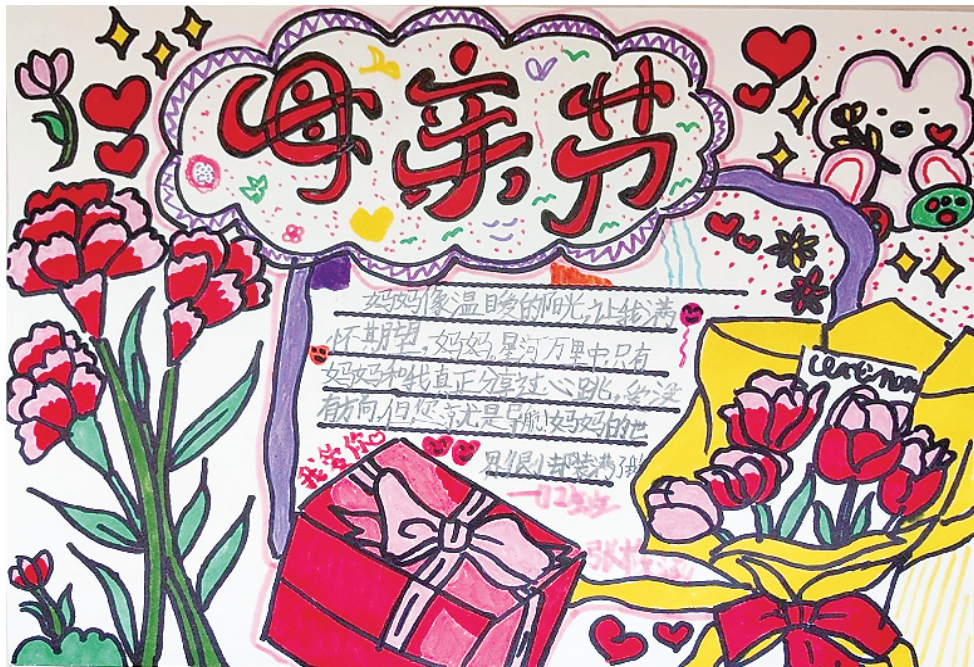 母亲节
妈妈像温暖的阳光,让我满
怀期望,妈妈。星河万里中,只有
妈妈和我真正分享过心跳。爱没
有方向,但您就是导航!妈妈的世
界很小却装满了我
我爱你